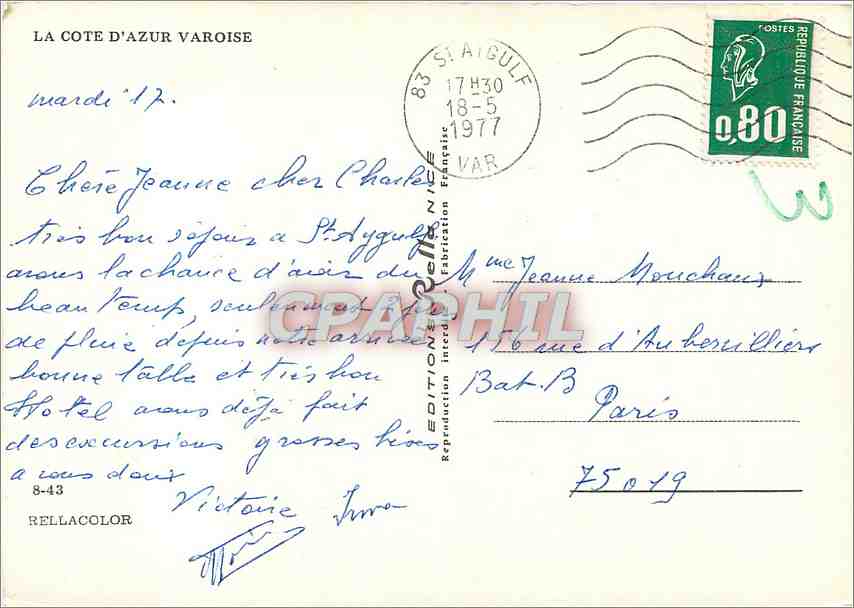 LA COTE D'AZUR VAROISE
mardi 17.
Chère Jeanne cher Charles
très bon séjour a St Aygulf
avons la chance d'avoir du
beau temps, seulement 2 jours
de pluie depuis notre arrivée
bonne table et très bon
Hotel avons déjà fait
des excursions grosses bises
a vous deux
Victoire
8-43
RELLACOLOR
EDITIONS Rella NICE
Reproduction interdite Fabrication Française
83 St AIGULF
17H30
18-5
1977
VAR
POSTES
REPUBLIQUE FRANÇAISE
0,80
3
Mme Jeanne Mouchaux
156 rue d'Aubervilliers
Bat. B
Paris
75019
CPAPHIL